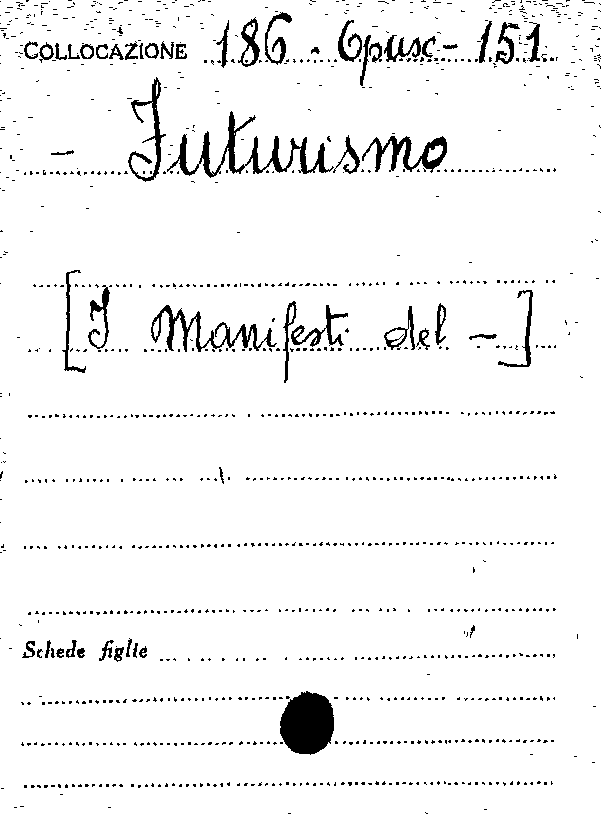 COLLOCAZIONE 186 - Opusc - 151
- Futurismo
[I Manifesti del -]
Schede figlie